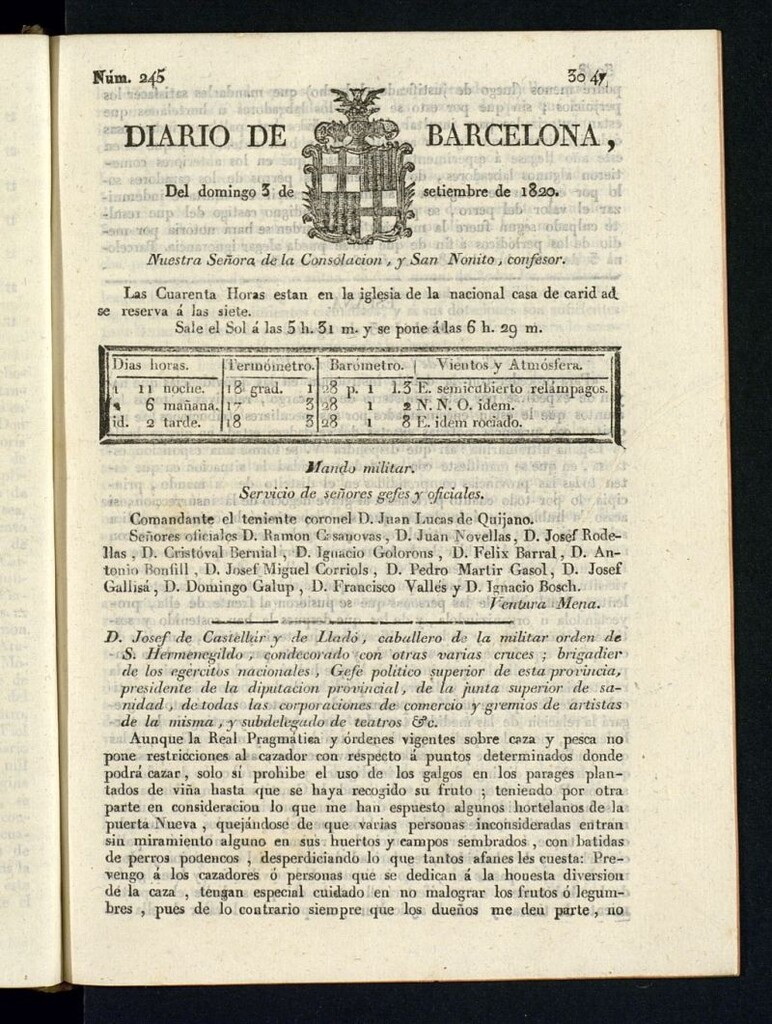 Núm. 245 3047
DIARIO DE BARCELONA,
Del domingo 3 de setiembre de 1820.
Nuestra Señora de la Consolacion, y San Nonito, confesor.
Las Cuarenta Horas estan en la iglesia de la nacional casa de caridad
se reserva á las siete.
Sale el Sol á las 5 h. 31 m. y se pone á las 6 h. 29 m.
Dias horas. Termómetro. Barómetro. Vientos y Atmósfera.
1 11 noche. 18 grad. 1 28 p. 1 l. 3 E. semicubierto relámpagos.
2 6 mañana. 17 3 28 1 2 N. N. O. idem.
id. 2 tarde. 18 3 28 1 8 E. idem rociado.
Mando militar.
Servicio de señores gefes y oficiales.
Comandante el teniente coronel D. Juan Lucas de Quijano.
Señores oficiales D. Ramon Casanovas, D. Juan Novellas, D. Josef Rode-
llas, D. Cristóval Bernial, D. Ignacio Golorons, D. Felix Barral, D. An-
tonio Bonfill, D. Josef Miguel Corriols, D. Pedro Martir Gasol, D. Josef
Gallisá, D. Domingo Galup, D. Francisco Vallés y D. Ignacio Bosch.
Ventura Mena.
D. Josef de Castellár y de Lladó, caballero de la militar orden de
S. Hermenegildo, condecorado con otras varias cruces; brigadier
de los egércitos nacionales, Gefe político superior de esta provincia,
presidente de la diputacion provincial, de la junta superior de sa-
nidad, de todas las corporaciones de comercio y gremios de artistas
de la misma, y subdelegado de teatros &c.
Aunque la Real Pragmática y órdenes vigentes sobre caza y pesca no
pone restricciones al cazador con respecto á puntos determinados donde
podrá cazar, solo sí prohibe el uso de los galgos en los parages plan-
tados de viña hasta que se haya recogido su fruto; teniendo por otra
parte en consideracion lo que me han espuesto algunos hortelanos de la
puerta Nueva, quejándose de que varias personas inconsideradas entran
sin miramiento alguno en sus huertos y campos sembrados, con batidas
de perros podencos, desperdiciando lo que tantos afanes les cuesta: Pre-
vengo á los cazadores ó personas que se dedican á la honesta diversion
de la caza, tengan especial cuidado en no malograr los frutos ó legum-
bres, pues de lo contrario siempre que los dueños me den parte, no